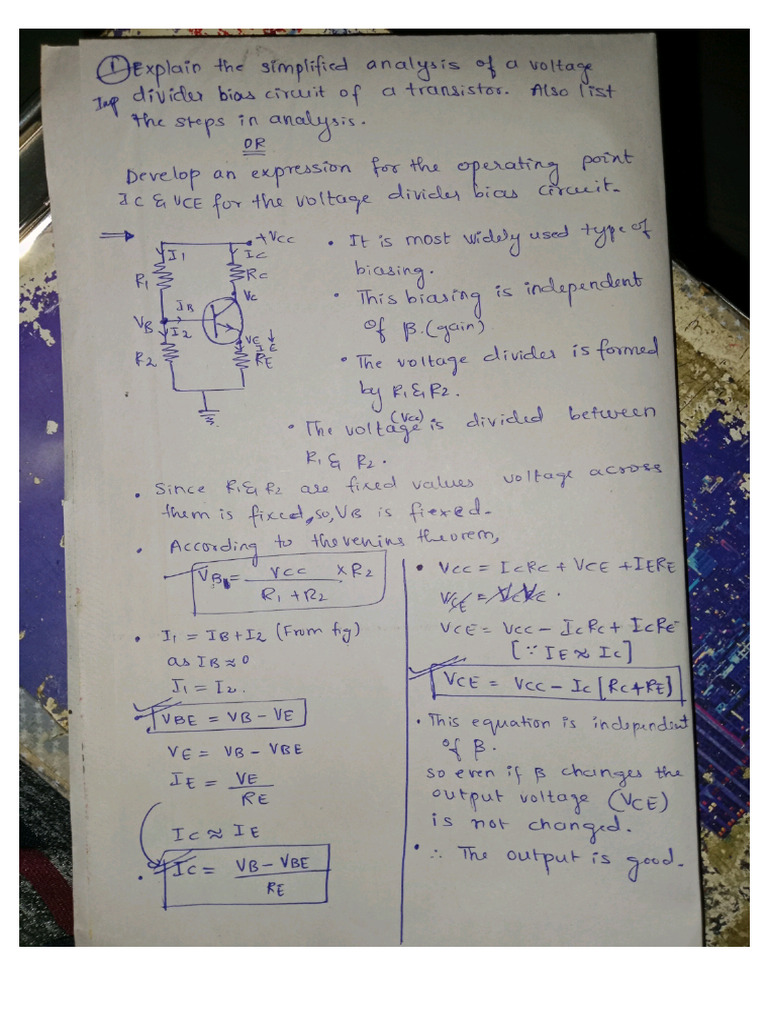 ① Explain the simplified analysis of a voltage
Imp divider bias circuit of a transistor. Also list
the steps in analysis.
OR
Develop an expression for the operating point
IC & VCE for the voltage divider bias circuit.
+VCC
I1
IC
R1
RC
VC
IB
VB
I2
VE
IE
R2
RE
• It is most widely used type of
biasing.
• This biasing is independent
of β.(gain)
• The voltage divider is formed
by R1 & R2.
(Vcc)
• The voltage is divided between
R1 & R2.
• Since R1 & R2 are fixed values voltage across
them is fixed, so, VB is fiexed.
• According to thevenins theorem,
VB = VCC / R1 + R2 × R2
• I1 = IB + I2 (From fig)
as IB ≈ 0
I1 = I2.
VBE = VB - VE
VE = VB - VBE
IE = VE / RE
IC ≈ IE
• IC = VB - VBE / RE
• VCC = ICRC + VCE + IERE
VCE = VCC - ICRC + ICRE
[∵ IE ≈ IC]
VCE = VCC - IC [RC + RE]
• This equation is independent
of β.
so even if β changes the
output voltage (VCE)
is not changed.
• ∴ The output is good.